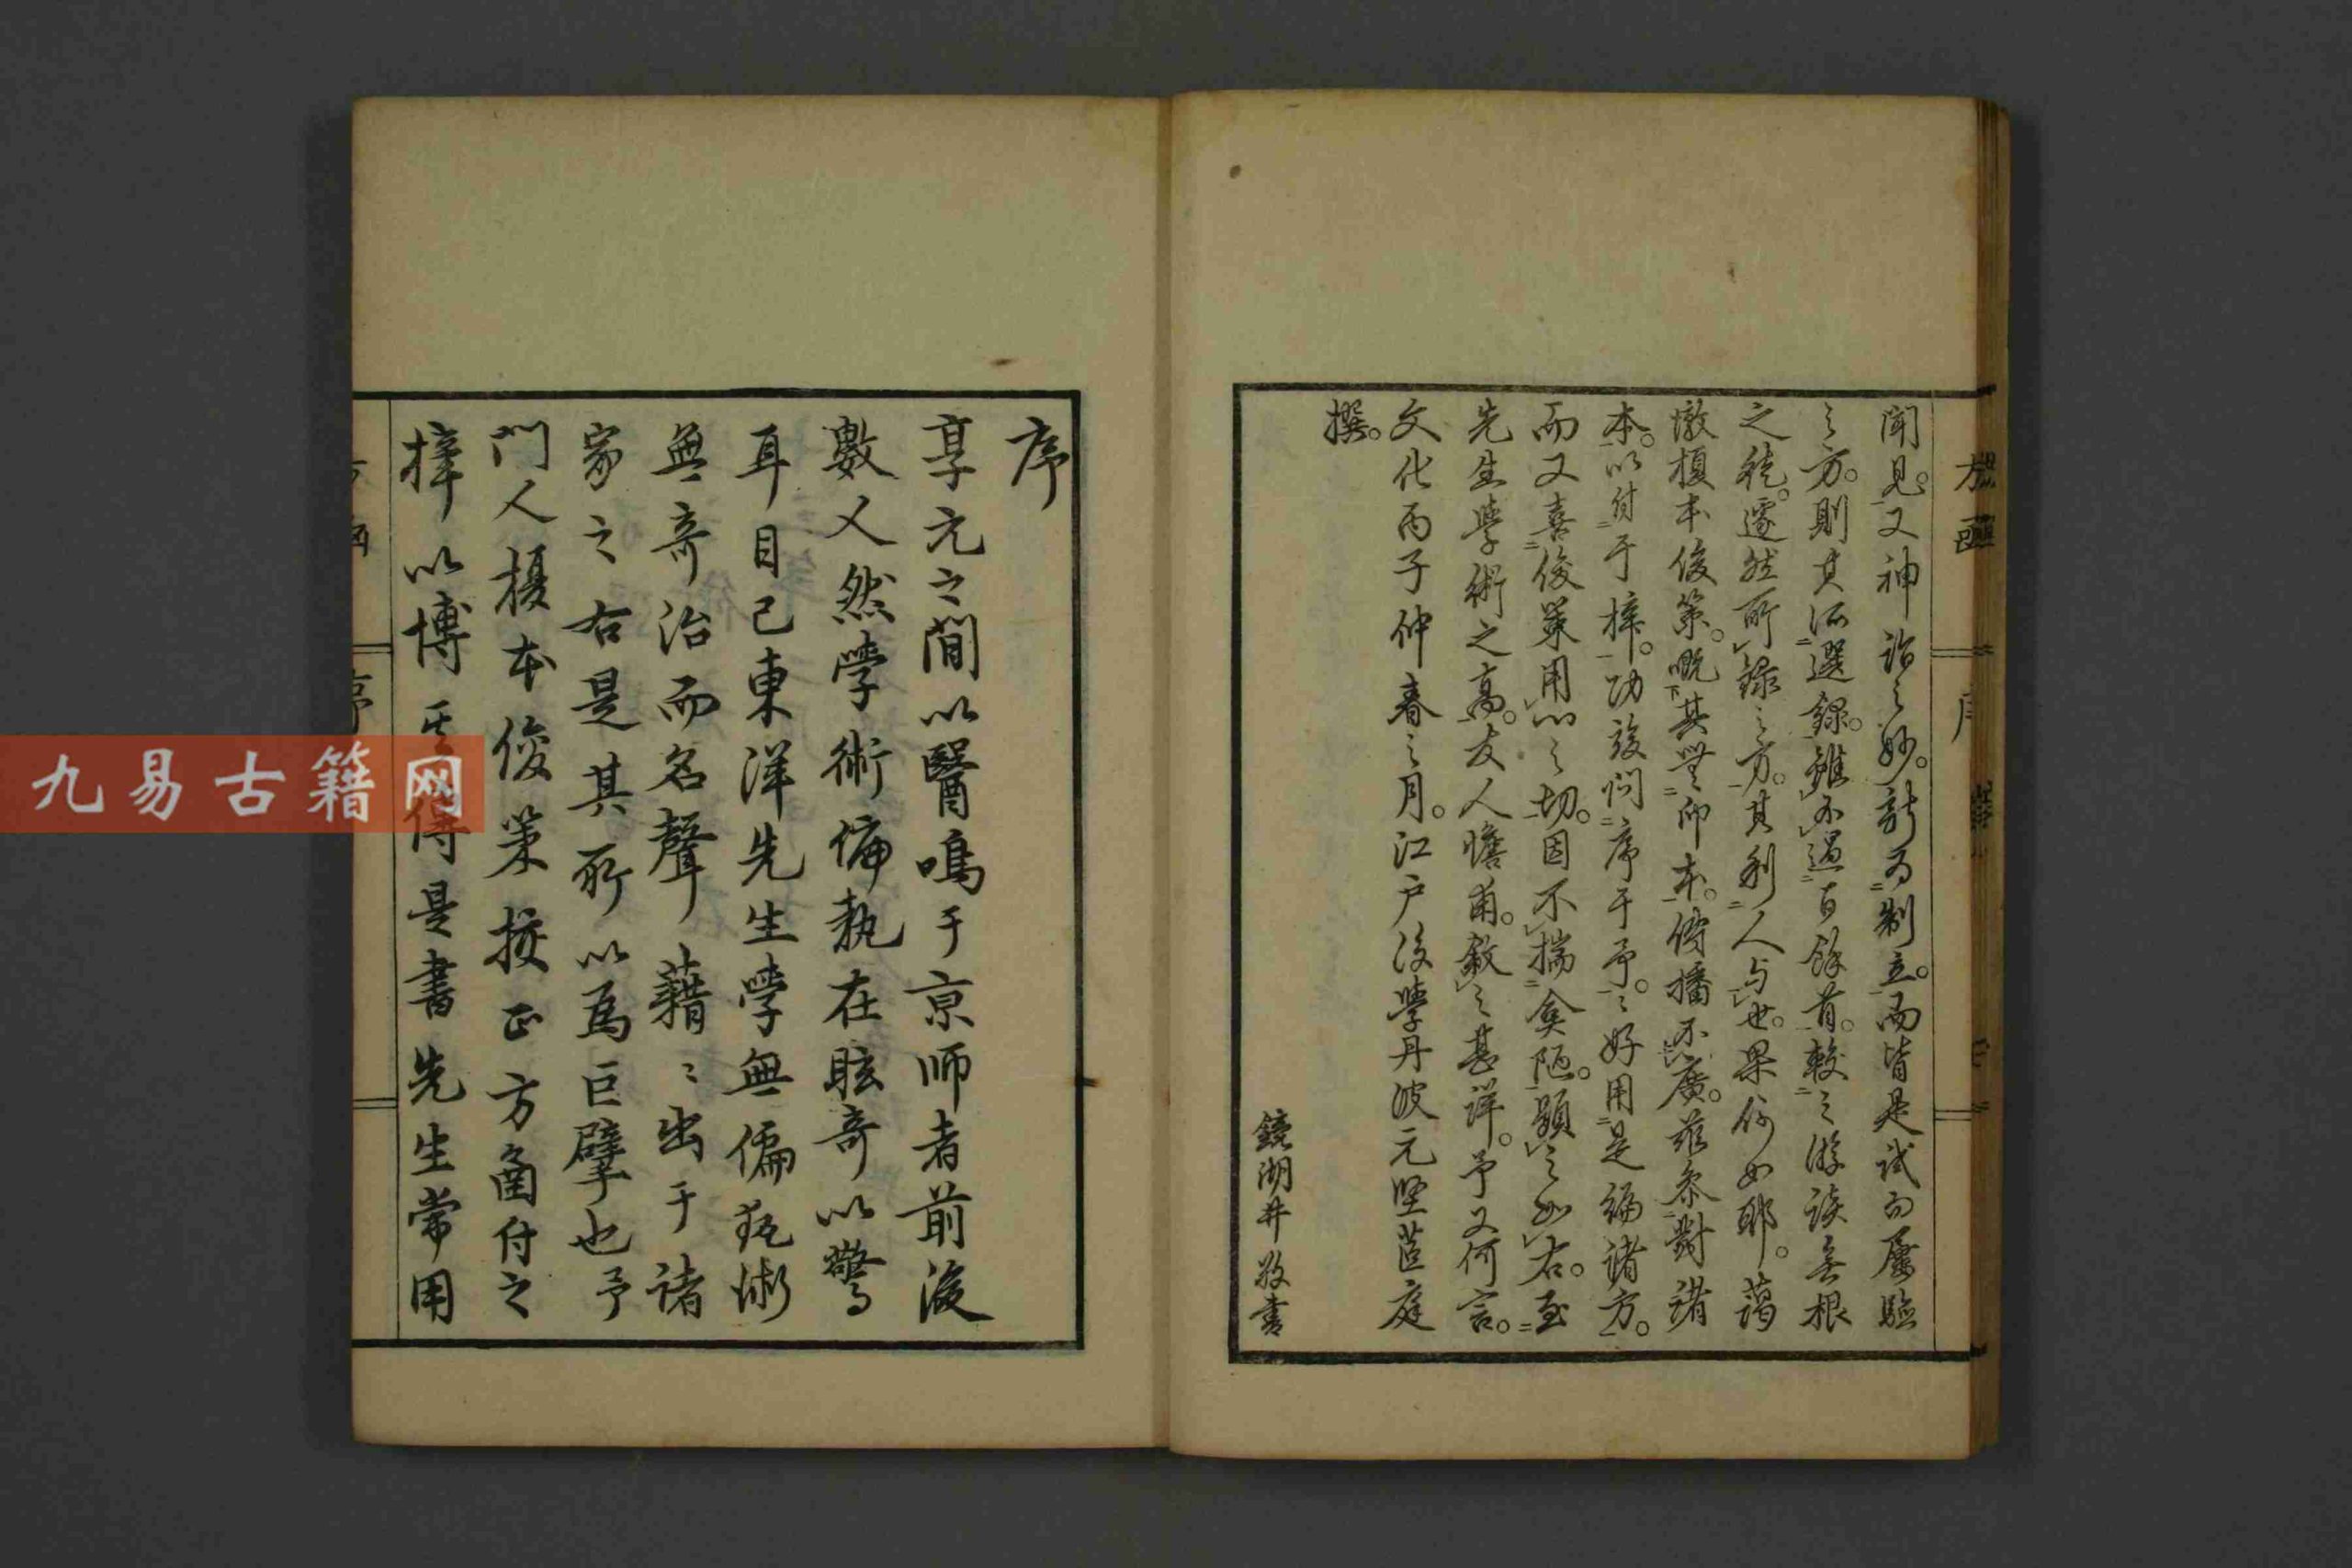 聞見。又神詣之妙。新為制立。而皆是試而屢驗
之方。則其所選錄。雖不過百餘首。較之游談無根
之徒。遽然所錄之方。其利人与世。果何如耶。藹
墩榎本俊策。嘅其無印本。傳播不廣。雜參對諸
本。以付于梓。功竣問序于予。予好用是編諸方。
而又喜俊策用心之切。因不揣僉陋。題之如右。至
先生學術之高。友人瞻甫。敘之甚詳。予又何言。
文化丙子仲春之月。江戶後學丹波元堅茝庭
撰。
鏡湖井敬書
序
享元之間以醫鳴于京師者前後
數人然學術偏執在眩奇以驚
耳目已東洋先生學無偏執術
無奇治而名聲藉々出于諸
家之右是其所以為巨擘也予
門人榎本俊策挍正方凾付之
梓以博其傳是書先生常用
九易古籍网